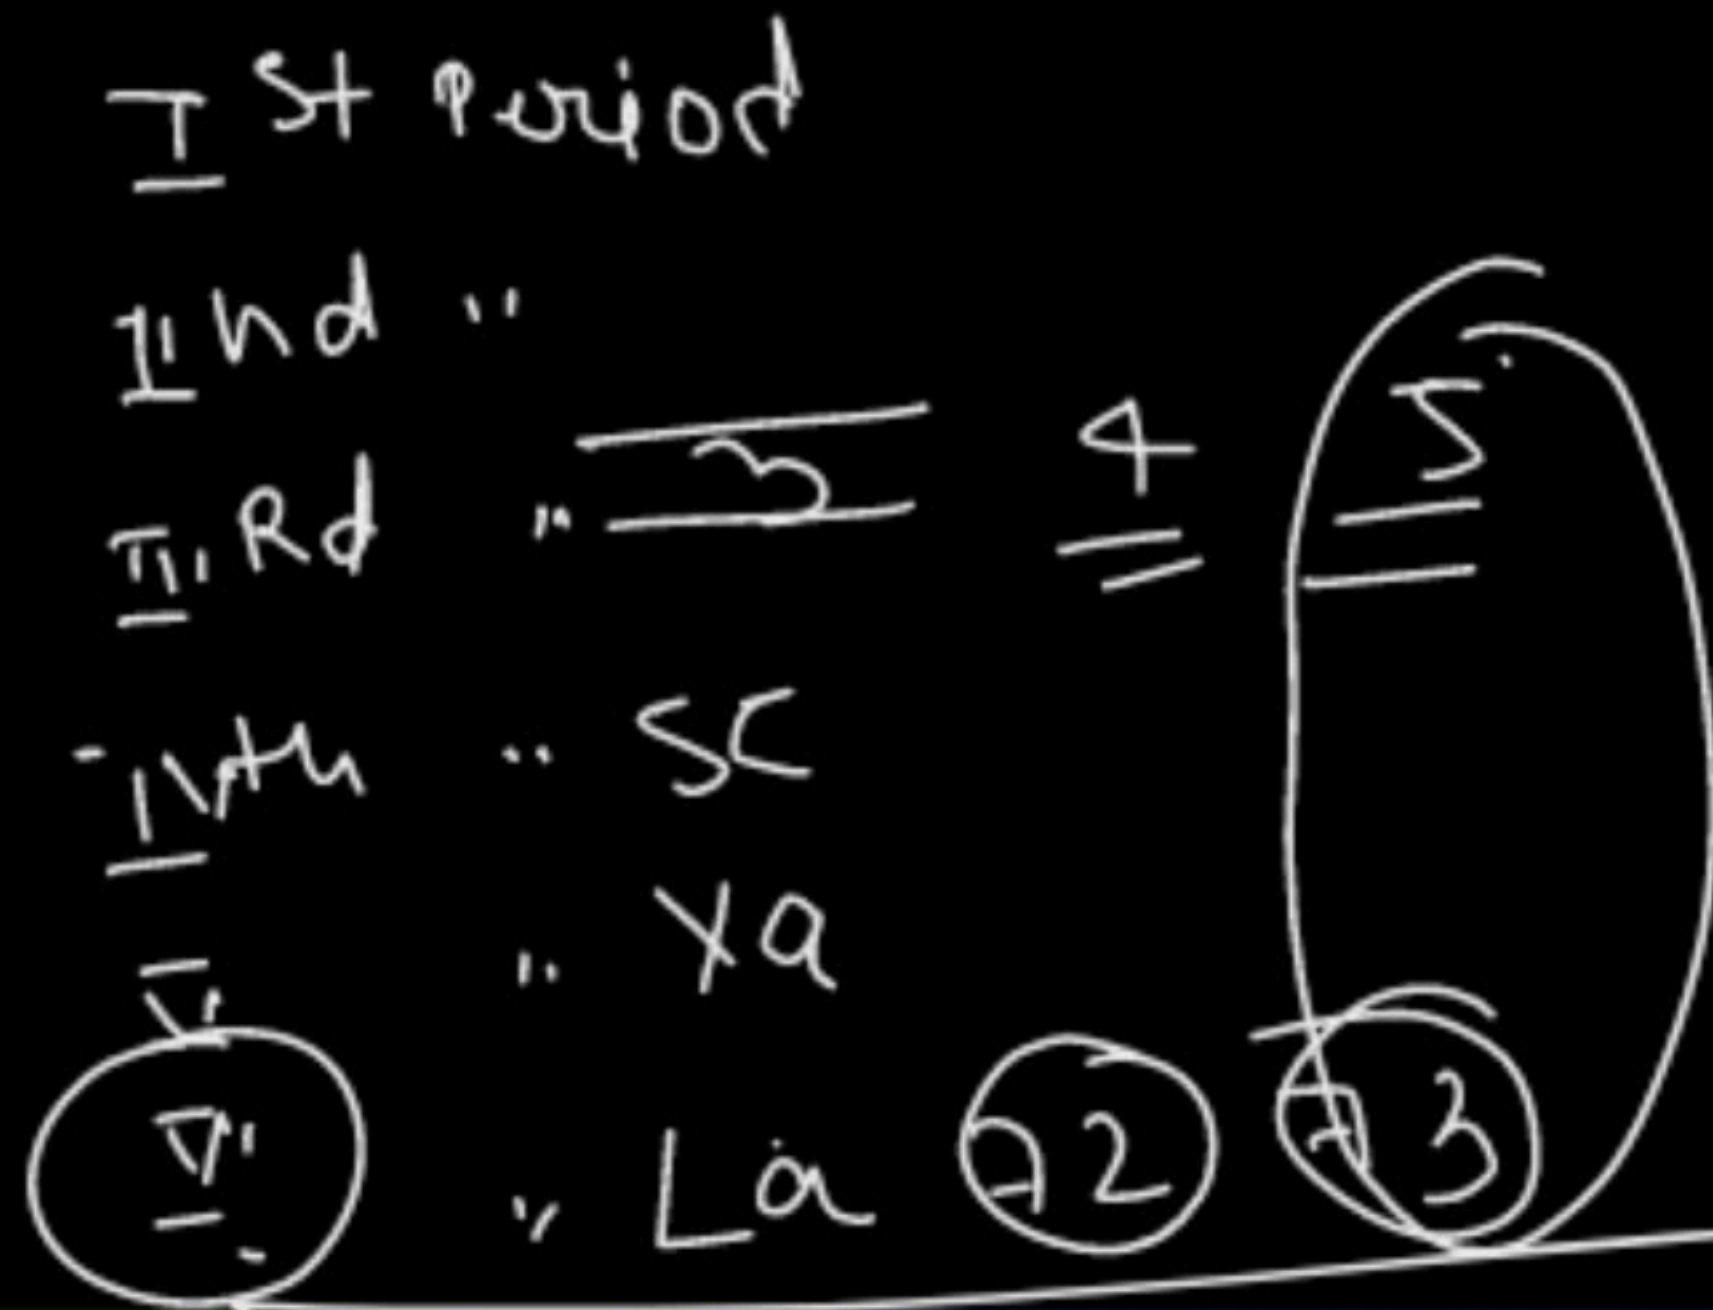 Ist Period
IInd "
IIIRd " 3 4 5
IVth " SC
V " Ya
VI " La 72 73